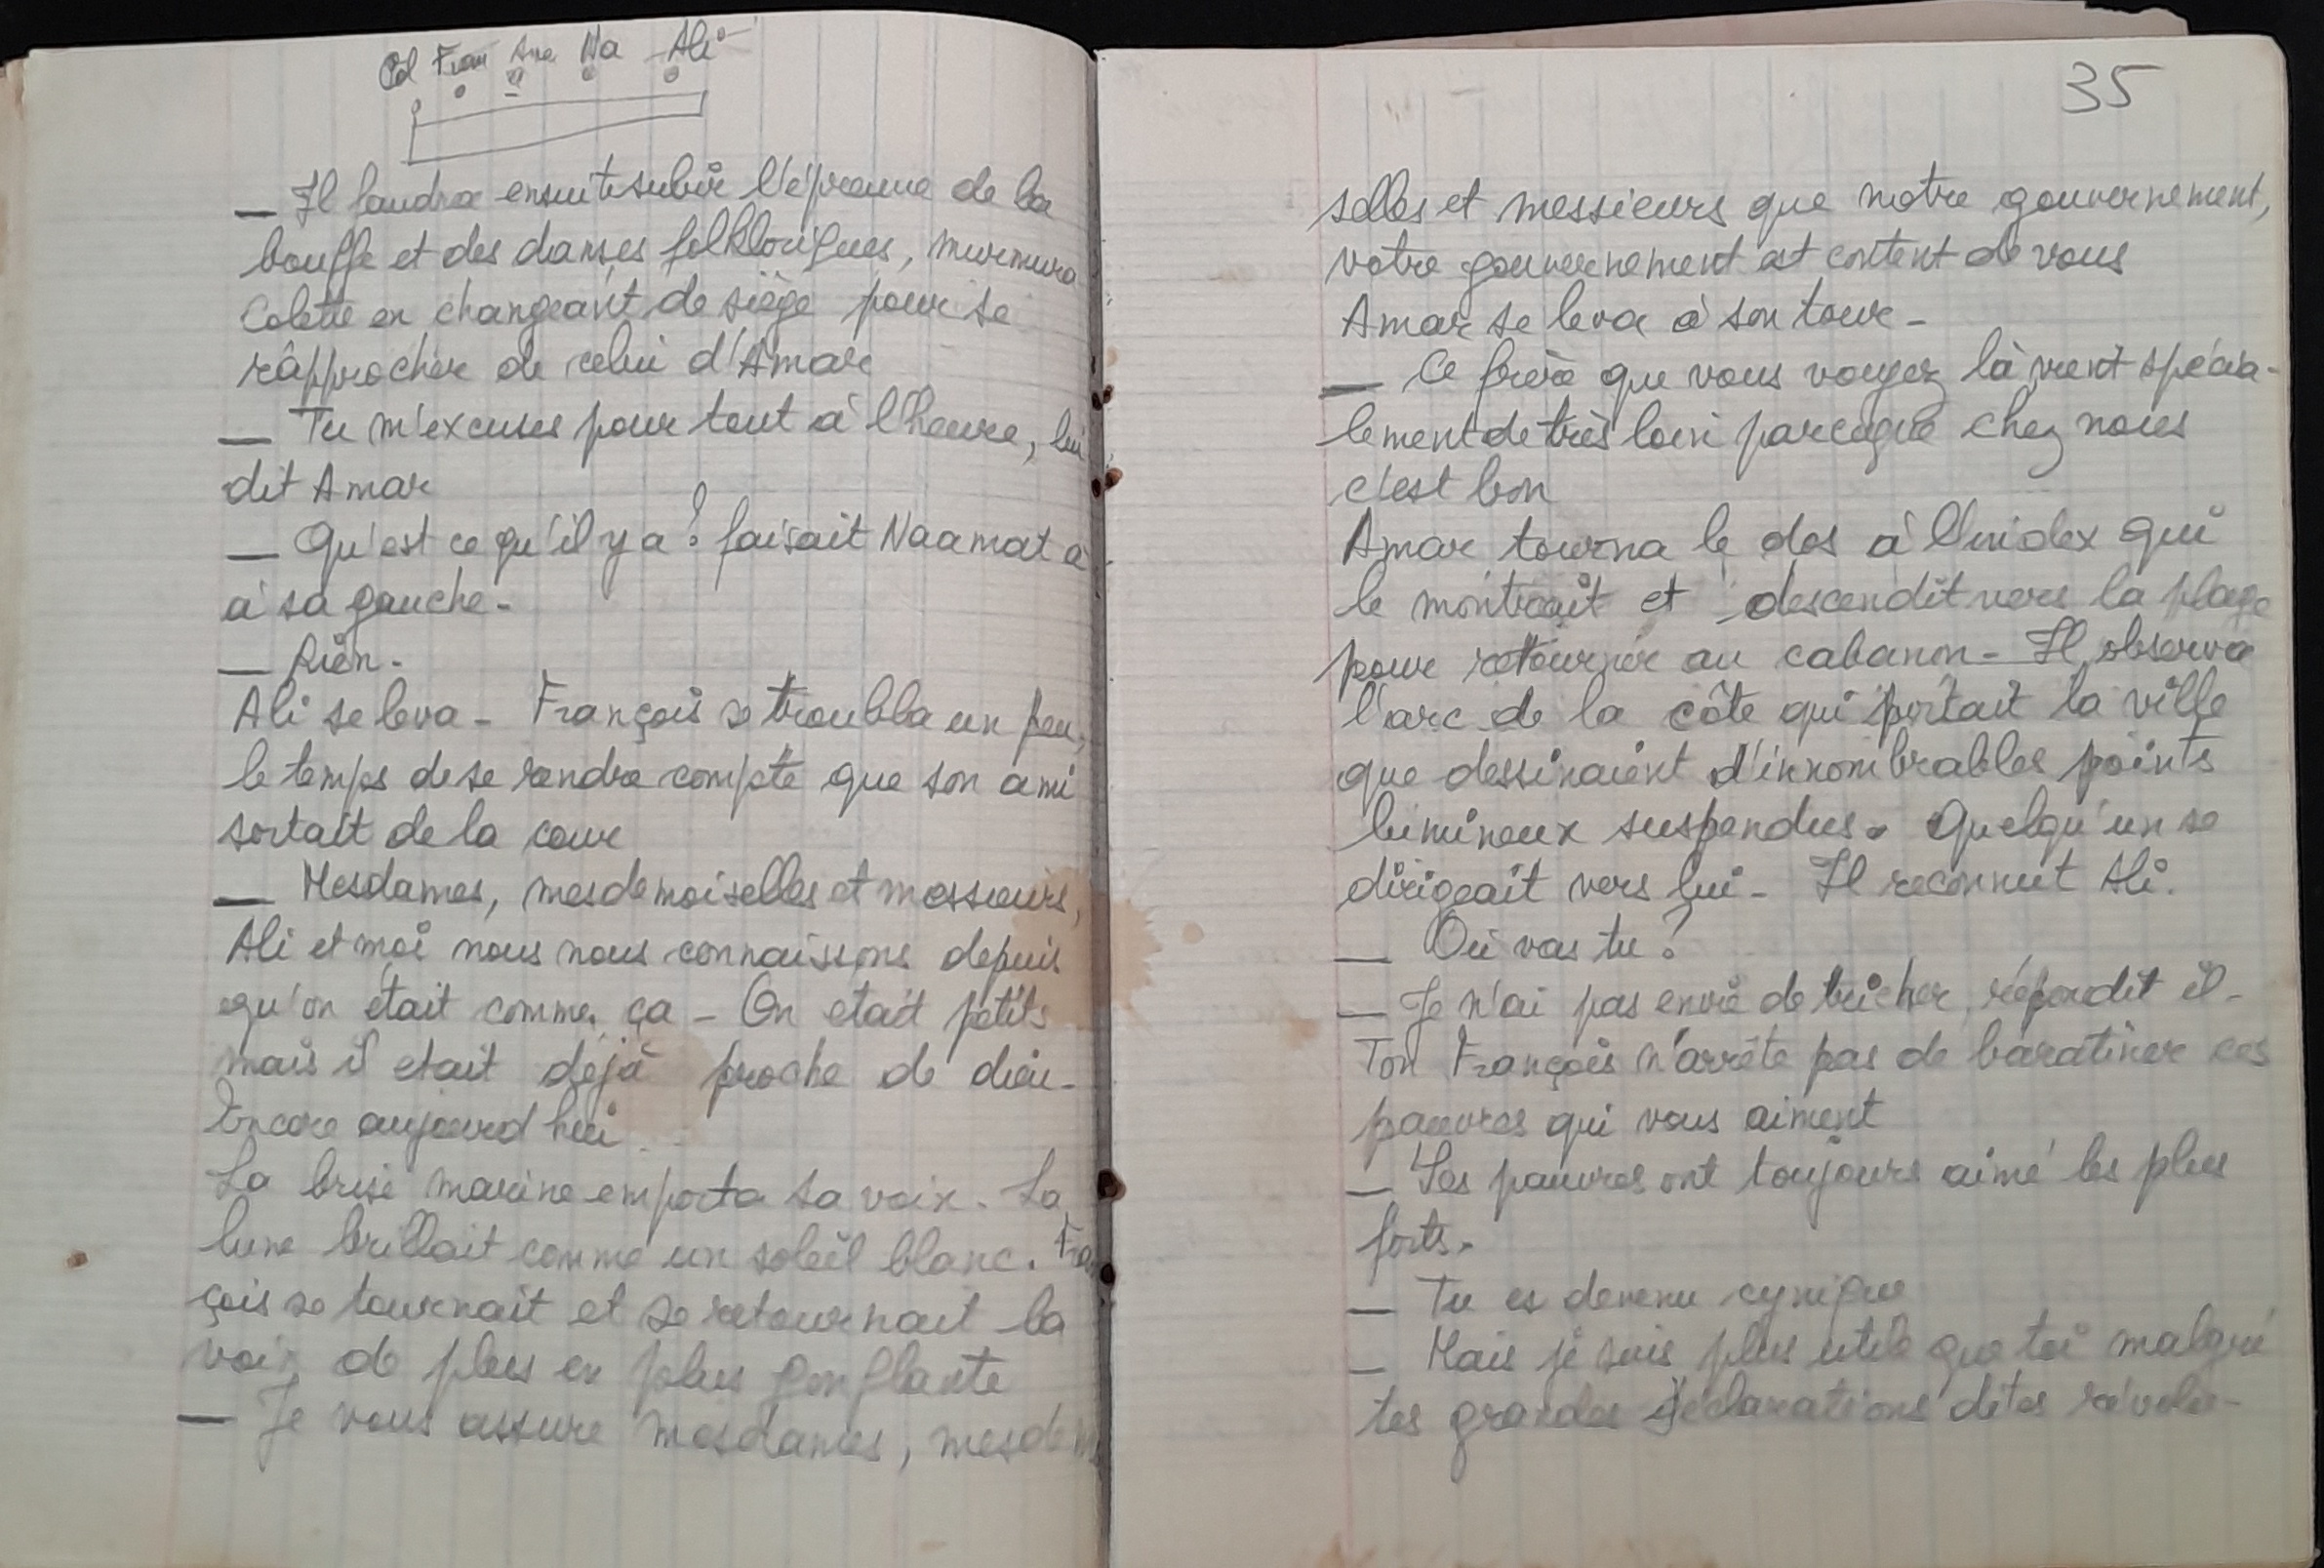 Col Fran Ama Na Ali
— Il faudra ensuite subir l'épreuve de la
bouffe et des danses folkloriques, murmura
Colette en changeant de siège pour se
rapprocher de celui d'Amar
— Tu m'excuses pour tout à l'heure, lui
dit Amar
— Qu'est ce qu'il y a ? faisait Naamat à
à sa gauche -
— Rien -
Ali se leva - François se troubla un peu,
le temps de se rendre compte que son ami
sortait de la cour
— Mesdames, mesdemoiselles et messieurs,
Ali et moi nous nous connaissons depuis
qu'on était comme ça - On etait petits
mais il etait déjà proche de dieu -
Encore aujourd'hui...
La brise marine emporta sa voix. La
lune brillait comme un soleil blanc. Fran
çois se tournait et se retournait la
voix de plus en plus gonflante
— Je vous assure mesdames, mesdem
35
selles et messieurs que notre gouvernement,
votre gouvernement est content de vous
Amar se leva à son tour -
— Ce frère que vous voyez là vient spécia-
lement de très loin parceque chez nous
c'est bon
Amar tourna le dos à l'index qui
le montrait et descendit vers la plage
pour retourner au cabanon - Il observa
l'arc de la côte qui portait la ville
que dessinaient d'innombrables points
lumineux suspendus. Quelqu'un se
dirigeait vers lui - Il reconnut Ali.
— Où vas tu ?
— Je n'ai pas envie de tricher, répondit il -
Ton François n'arrête pas de baratiner ces
pauvres qui vous aiment
— Les pauvres ont toujours aimé les plus
forts.
— Tu es devenu cynique
— Mais je suis plus utile que toi malgré
tes grandes déclarations dites révolu-